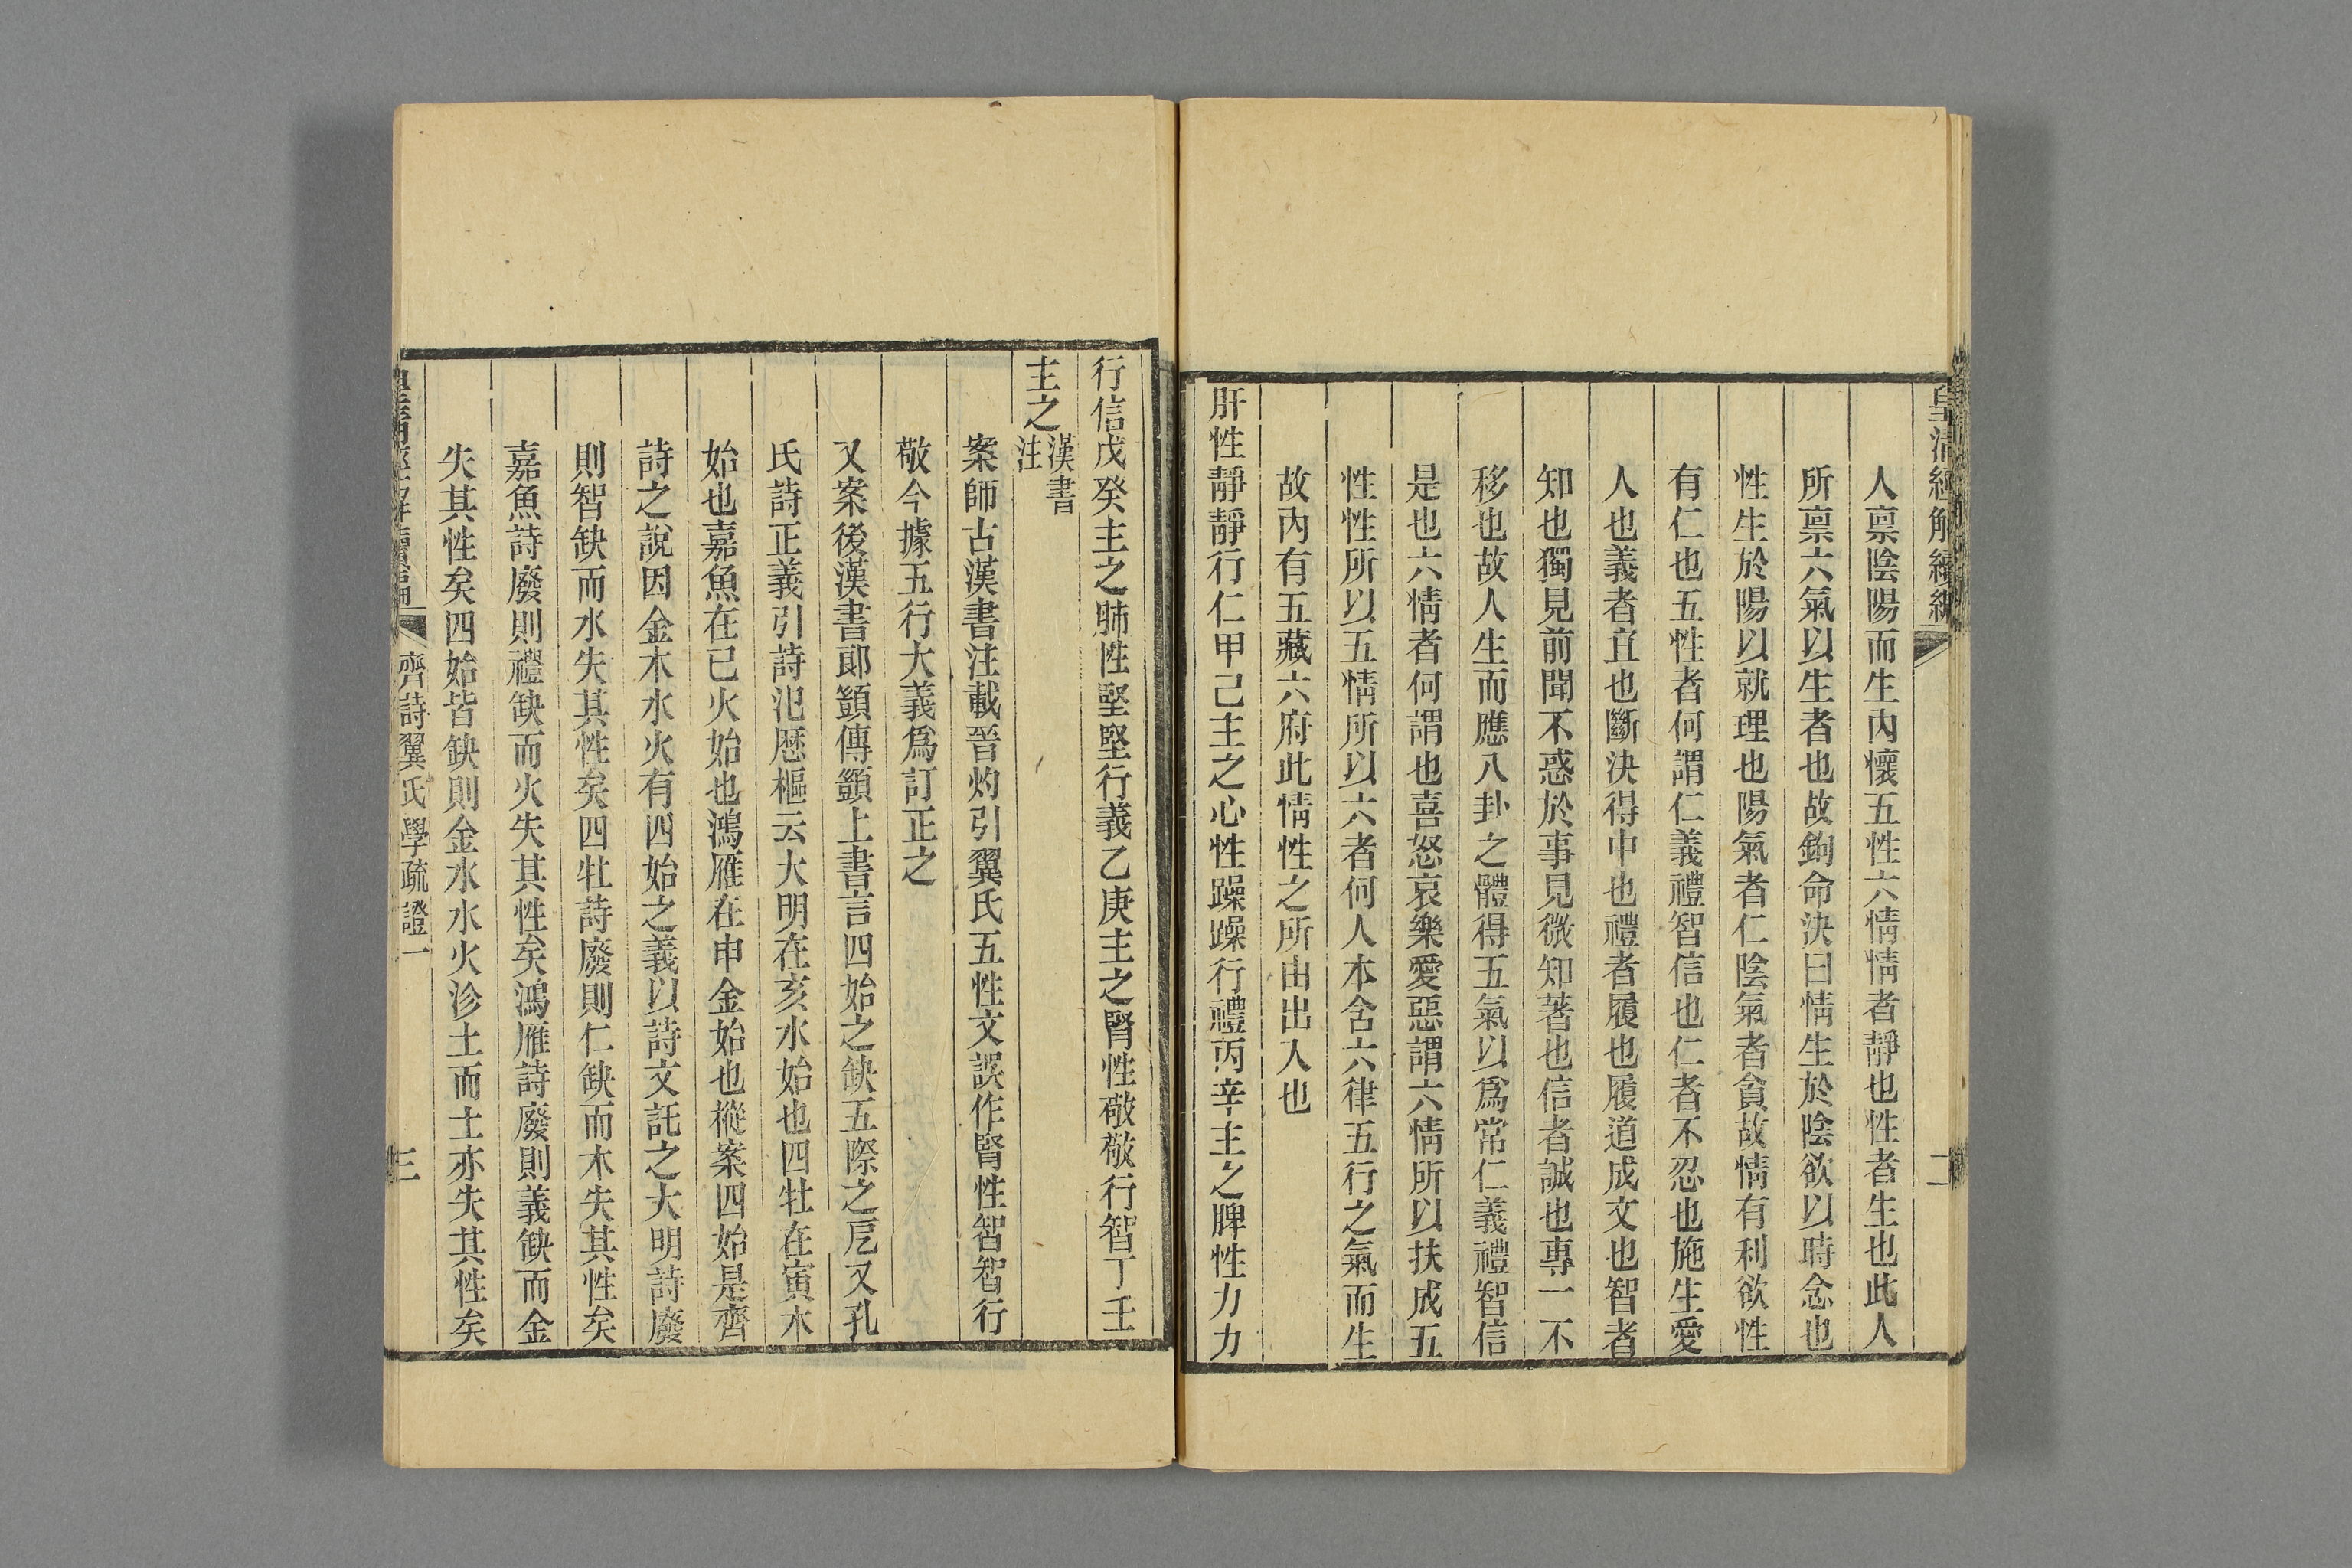 皇清經解續編
二
人禀陰陽而生內懷五性六情情者靜也性者生也此人
所禀六氣以生者也故鉤命決曰情生於陰欲以時念也
性生於陽以就理也陽氣者仁陰氣者貪故情有利欲性
有仁也五性者何謂仁義禮智信也仁者不忍也施生愛
人也義者宜也斷決得中也禮者履也履道成文也智者
知也獨見前聞不惑於事見微知著也信者誠也專一不
移也故人生而應八卦之體得五氣以爲常仁義禮智信
是也六情者何謂也喜怒哀樂愛惡謂六情所以扶成五
性性所以五情所以六者何人本含六律五行之氣而生
故內有五藏六府此情性之所由出入也
肝性靜靜行仁甲己主之心性躁躁行禮丙辛主之脾性力力
行信戊癸主之肺性堅堅行義乙庚主之腎性敬敬行智丁壬
主之漢書
注
案師古漢書注載晉灼引翼氏五性文誤作腎性智智行
敬今據五行大義爲訂正之
又案後漢書郞顗傳顗上書言四始之缺五際之戹又孔
氏詩正義引詩氾厯樞云大明在亥水始也四牡在寅木
始也嘉魚在巳火始也鴻雁在申金始也樅案四始是齊
詩之說因金木水火有四始之義以詩文託之大明詩廢
則智缺而水失其性矣四牡詩廢則仁缺而木失其性矣
嘉魚詩廢則禮缺而火失其性矣鴻雁詩廢則義缺而金
失其性矣四始皆缺則金水水火沴土而土亦失其性矣
皇清經解續編
齊詩翼氏學疏證一
三